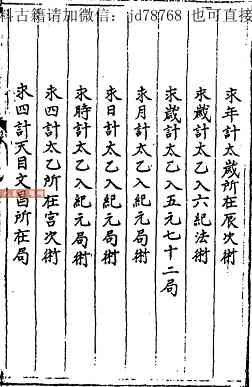 科古籍请加微信：jd78768 也可直接
求年計太歲所在辰次術
求歲計太乙入六紀法術
求歲計太乙入五元七十二局
求月計太乙入紀元局術
求日計太乙入紀元局術
求時計太乙入紀元局術
求四計太乙所在宮次術
求四計天目文昌所在局